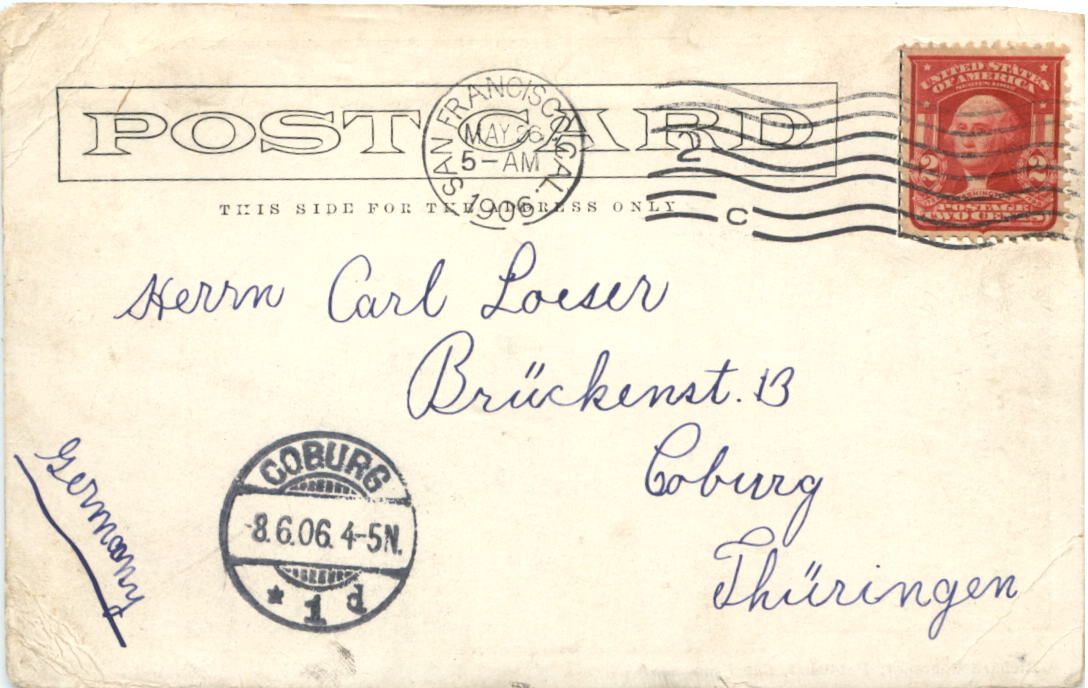 POST CARD
THIS SIDE FOR THE ADDRESS ONLY
SAN FRANCISCO, CAL.
MAY 26
5-AM
1906
2
C
UNITED STATES
OF AMERICA
SERIES 1902
2 2
WASHINGTON
POSTAGE
TWO CENTS
Herrn Carl Loeser
Brückenst. 13
Coburg
Thüringen
Germany
COBURG
-8.6.06. 4-5N.
* 1 d